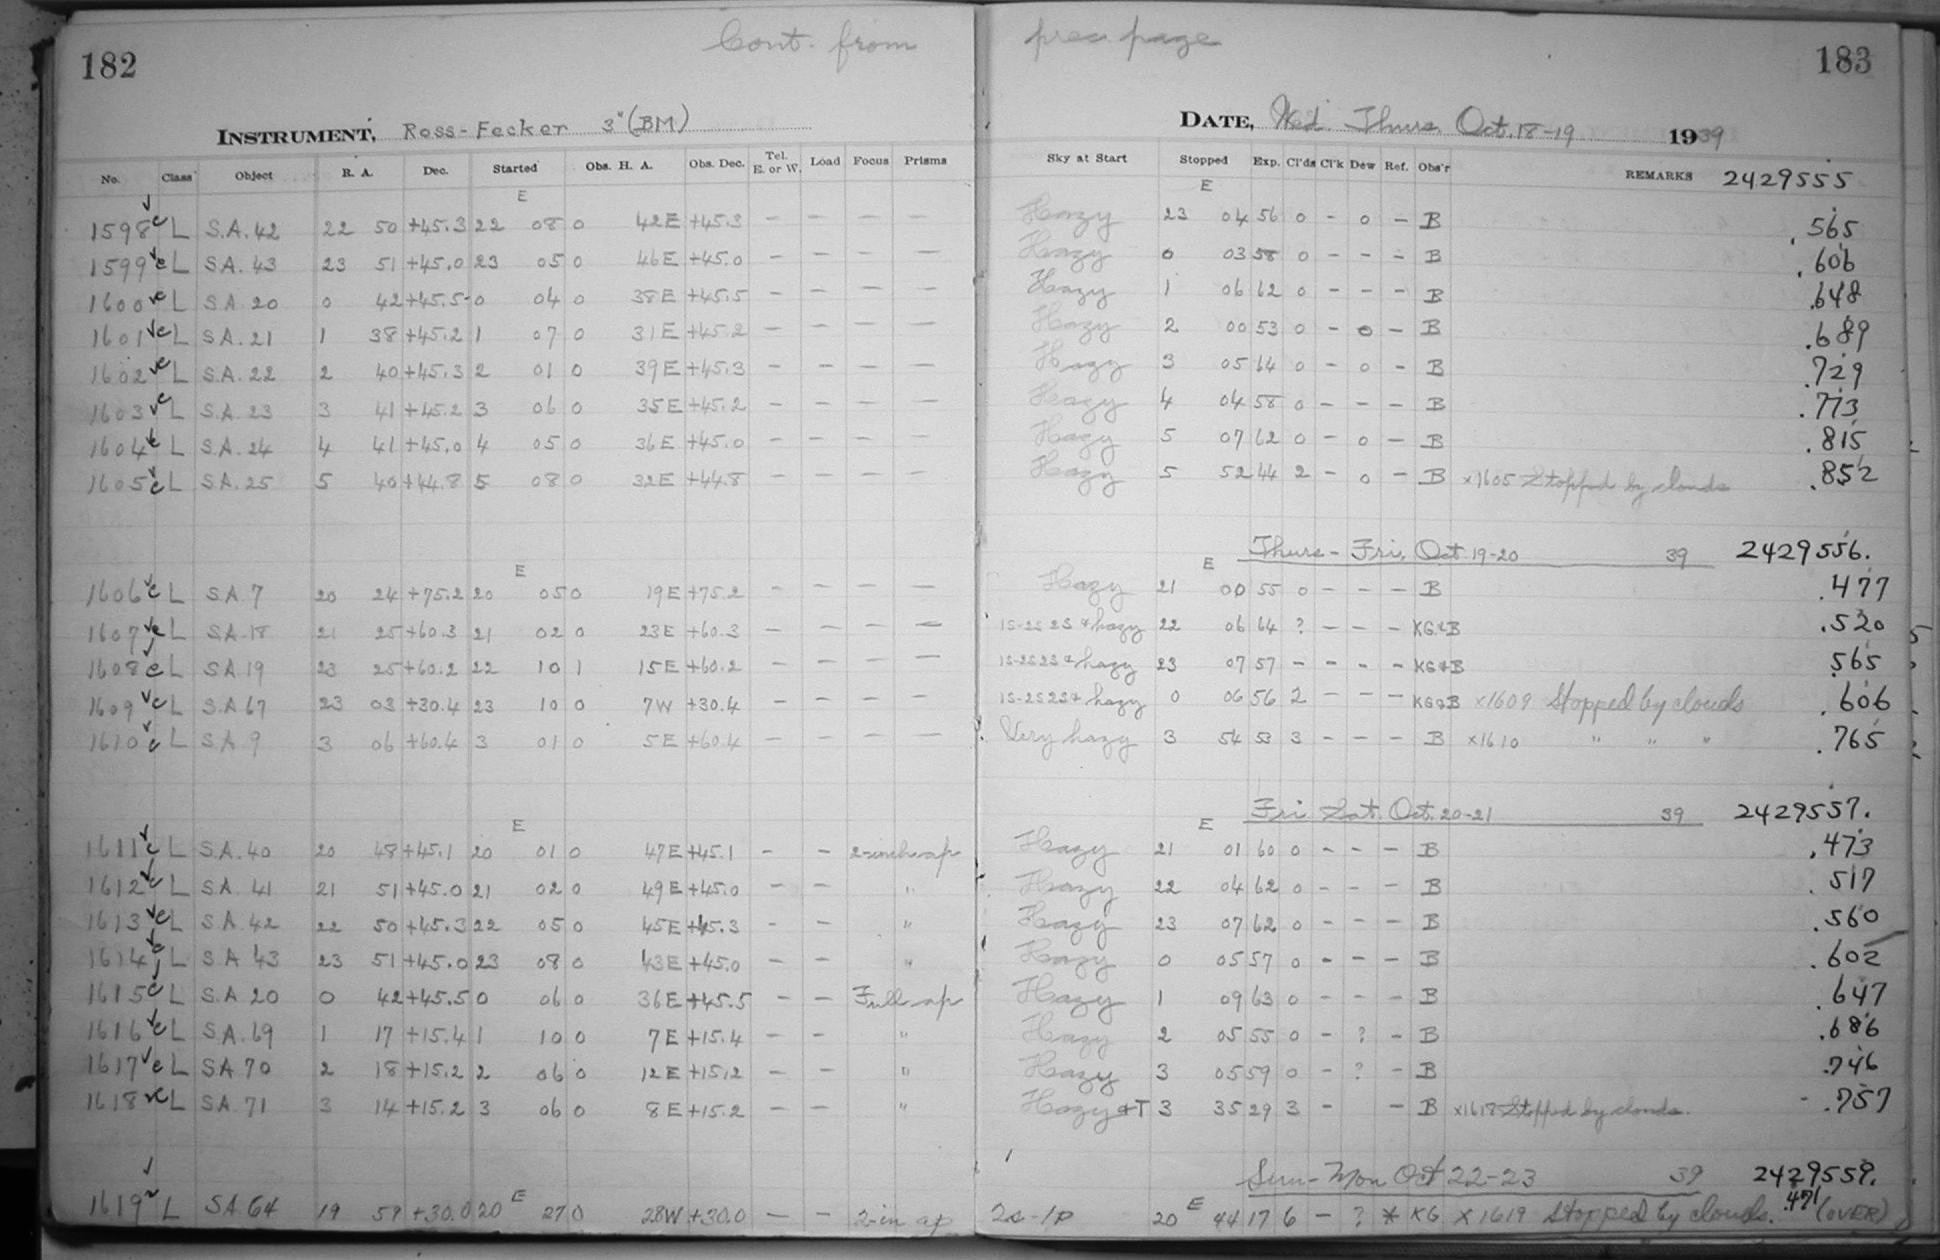 182
Cont. from prec. page
183
INSTRUMENT, Ross-Fecker 3"(BM) DATE, Wed Thurs. Oct. 18-19 1939
No. Class Object R. A. Dec. Started Obs. H. A. Obs. Dec. Tel. E. or W. Load Focus Prisms Sky at Start Stopped Exp. Cl'ds Cl'k Dew Ref. Obs'r REMARKS 2429555
E E
1598 c L S.A.42 22 50 +45.3 22 08 0 42E +45.3 – – – – Hazy 23 04 56 0 – 0 – B .565
1599 c L S.A. 43 23 51 +45.0 23 05 0 46E +45.0 – – – – Hazy 0 03 58 0 – – – B .606
1600 c L S.A. 20 0 42 +45.5 0 04 0 38E +45.5 – – – – Hazy 1 06 62 0 – – – B .648
1601 c L S.A. 21 1 38 +45.2 1 07 0 31E +45.2 – – – – Hazy 2 00 53 0 – 0 – B .689
1602 c L S.A. 22 2 40 +45.3 2 01 0 39E +45.3 – – – – Hazy 3 05 64 0 – 0 – B .729
1603 c L S.A. 23 3 41 +45.2 3 06 0 35E +45.2 – – – – Hazy 4 04 58 0 – – – B .773
1604 c L S.A. 24 4 41 +45.0 4 05 0 36E +45.0 – – – – Hazy 5 07 62 0 – 0 – B .815
1605 c L S.A. 25 5 40 +44.8 5 08 0 32E +44.8 – – – – Hazy 5 52 44 2 – 0 – B x1605 Stopped by clouds .852
Thurs - Fri. Oct 19-20 39 2429556.
E E
1606 c L S.A. 7 20 24 +75.2 20 05 0 19E +75.2 – – – – Hazy 21 00 55 0 – – – B .477
1607 c L S.A. 18 21 25 +60.3 21 02 0 23E +60.3 – – – – 1S-2S 2S + hazy 22 06 64 ? – – – KG&B .520
1608 c L S.A. 19 23 25 +60.2 22 10 1 15E +60.2 – – – – 1S-2S 2S + hazy 23 07 57 – – – – KG&B .565
1609 c L S.A 67 23 03 +30.4 23 10 0 7W +30.4 – – – – 1S-2S 2S + hazy 0 06 56 2 – – – KG&B x1609 Stopped by clouds .606
1610 c L S.A. 9 3 06 +60.4 3 01 0 5E +60.4 – – – – Very hazy 3 54 53 3 – – – B x1610 " " " .765
Fri Sat. Oct. 20-21 39 2429557.
E E
1611 c L S.A. 40 20 48 +45.1 20 01 0 47E +45.1 – – 2-inch ap Hazy 21 01 60 0 – – – B .473
1612 c L S.A. 41 21 51 +45.0 21 02 0 49E +45.0 – – " Hazy 22 04 62 0 – – – B .517
1613 c L S.A. 42 22 50 +45.3 22 05 0 45E +45.3 – – " Hazy 23 07 62 0 – – – B .560
1614 c L S.A 43 23 51 +45.0 23 08 0 43E +45.0 – – " Hazy 0 05 57 0 – – – B .602
1615 c L S.A. 20 0 42 +45.5 0 06 0 36E +45.5 – – Full ap Hazy 1 09 63 0 – – – B .647
1616 c L S.A. 69 1 17 +15.4 1 10 0 7E +15.4 – – " Hazy 2 05 55 0 – ? – B .686
1617 c L S.A 70 2 18 +15.2 2 06 0 12E +15.2 – – " Hazy 3 05 59 0 – ? – B .746
1618 c L S.A. 71 3 14 +15.2 3 06 0 8E +15.2 – – " Hazy + T 3 35 29 3 – – B x1618 Stopped by clouds. .757
Sun-Mon Oct 22-23 39 2429559.
E E
1619 L S.A. 64 19 59 +30.0 20 27 0 28W +30.0 – – 2-in ap 2s-1p 20 44 17 6 – ? * KG x1619 Stopped by clouds. .471 (OVER)